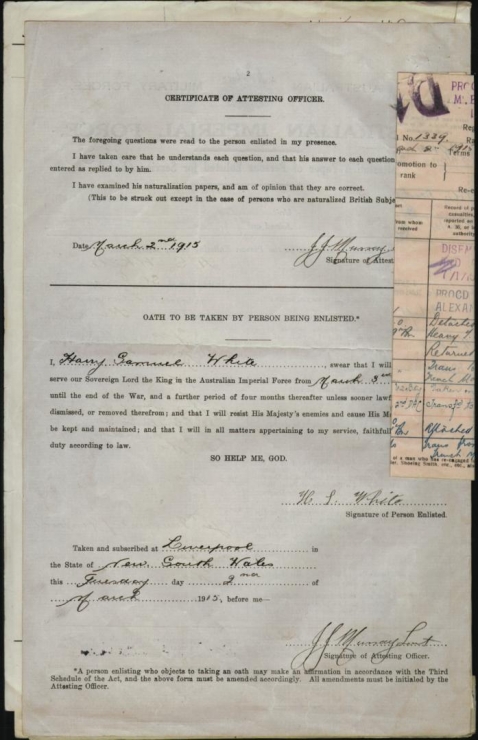 2
CERTIFICATE OF ATTESTING OFFICER.
The foregoing questions were read to the person enlisted in my presence.
I have taken care that he understands each question, and that his answer to each question
entered as replied to by him.
I have examined his naturalization papers, and am of opinion that they are correct.
(This to be struck out except in the case of persons who are naturalized British Subje
Date March 2nd 1915
J J Murray
Signature of Attest
OATH TO BE TAKEN BY PERSON BEING ENLISTED.*
I, Harry Samuel White, swear that I will
serve our Sovereign Lord the King in the Australian Imperial Force from March
until the end of the War, and a further period of four months thereafter unless sooner lawf
dismissed, or removed therefrom; and that I will resist His Majesty's enemies and cause His M
be kept and maintained; and that I will in all matters appertaining to my service, faithfull
duty according to law.
SO HELP ME, GOD.
H S White
Signature of Person Enlisted.
Taken and subscribed at Liverpool in
the State of New South Wales
this Tuesday day 2nd of
March 1915, before me—
J J Murray Lieut
Signature of Attesting Officer.
*A person enlisting who objects to taking an oath may make an affirmation in accordance with the Third
Schedule of the Act, and the above form must be amended accordingly. All amendments must be initialed by the
Attesting Officer.
No. 1339
Terms
romotion to
rank
Re-e
from whom
received
Record of p
casualties,
reported on
authority
DISEM
PROCD
ALEXAN
Detached
Heavy
Returned
Trans
Attached
Trans from